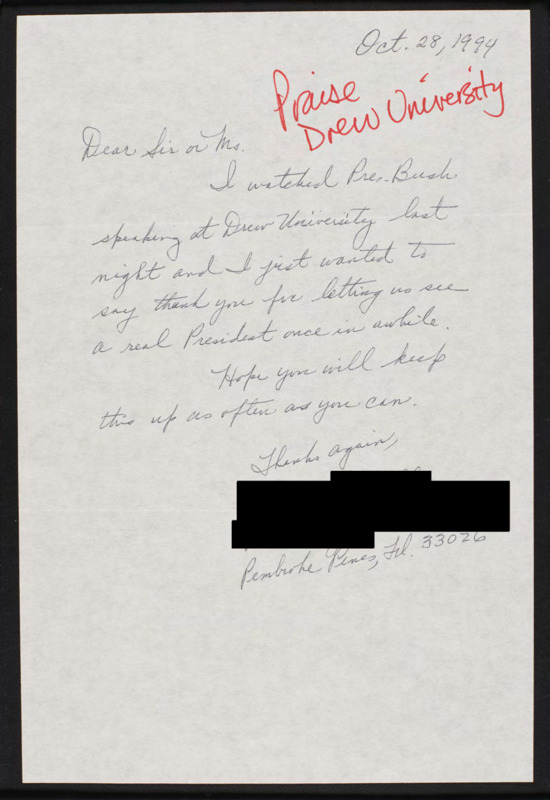 Oct. 28, 1994
Praise
Drew University
Dear Sir or Ms.
I watched Pres. Bush
speaking at Drew University last
night and I just wanted to
say thank you for letting us see
a real President once in awhile.
Hope you will keep
this up as often as you can.
Thanks again,
Pembroke Pines, Fl. 33026